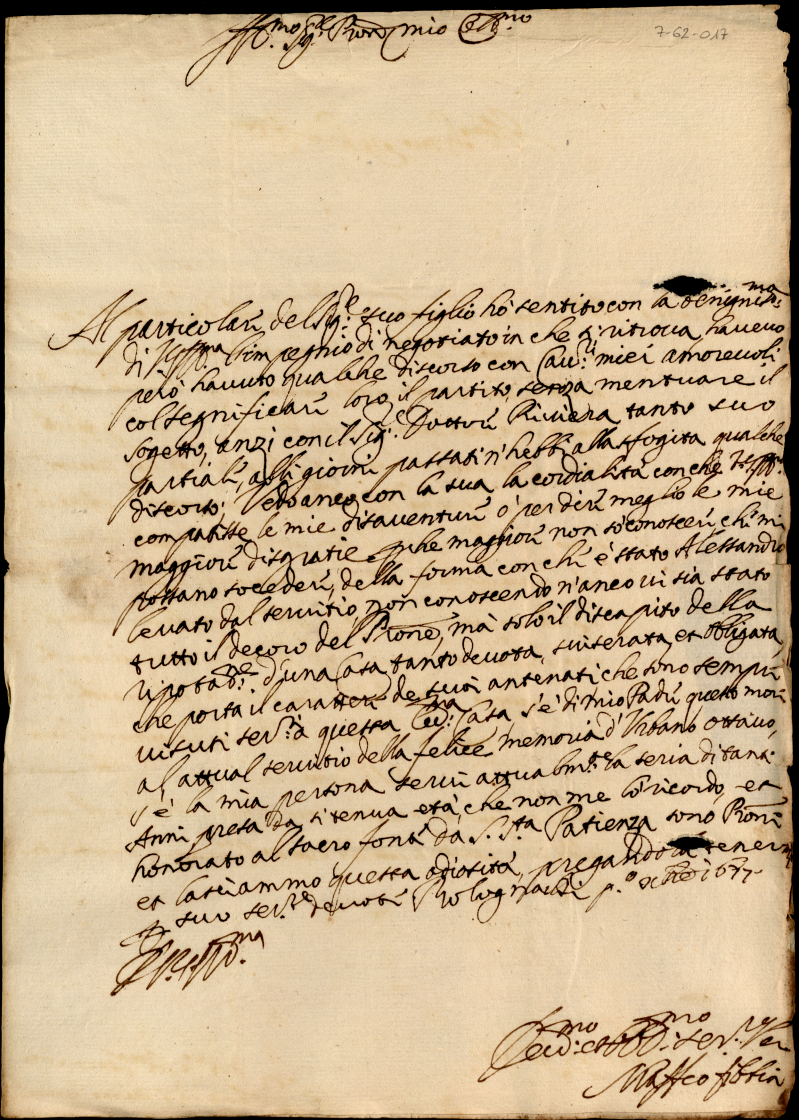 Ill.mo Sig.r Pron mio Col.mo
7-62-017
Al particolare del Sig.re suo figlio hò sentito con la benignis.ma
di V.S. Ill.ma l'impegnio di negotiato in che si ritroua haueuo
però hauuto qualche discorso con Cau.ri miei amoreuoli
col segnificare loro il partito senza mentuare il
sogetto, anzi con il Sig.r Dottore Riviera tanto suo
partiale, alli giorni passati n'hebbi alla sfogita qualche
discorso; Vedo anco con la sua la cordialità con che V.S. Ill.
compatisse le mie disauenture ó per dire meglio le mie
maggiori disgratie che maggiori non sò conoscere che mi
possano socedere, della forma con che è stato Alessandro
leuato dal seruitio non conoscendo n'anco ui sia stato
tutto il decoro del Prone, mà solo il discapito della
riputat.ne d'una Casa tanto deuota, suiserata et obligata,
che porta il carattere de suoi antenati che sono sempre
uisuti ser.ri à questa Ecc.ma Casa s'è di mio Padre questo morì
al attual seruitio della felice memoria d'Urbano ottauo,
s'è la mia persona serui attualm.te la seria di tanti
Anni presa da si tenua età, che non me lò ricordo, et
honorato al sacro fonte da S. S.ta Patienza sono Proni
et lasciammo questa odiosità, pregando la tenermi
p suo ser.re deuoto Bologna li p.o Xbre 1677
D. V.S. Ill.ma
Deu.mo et Obb.mo ser.re Ver
Maffeo fibbia